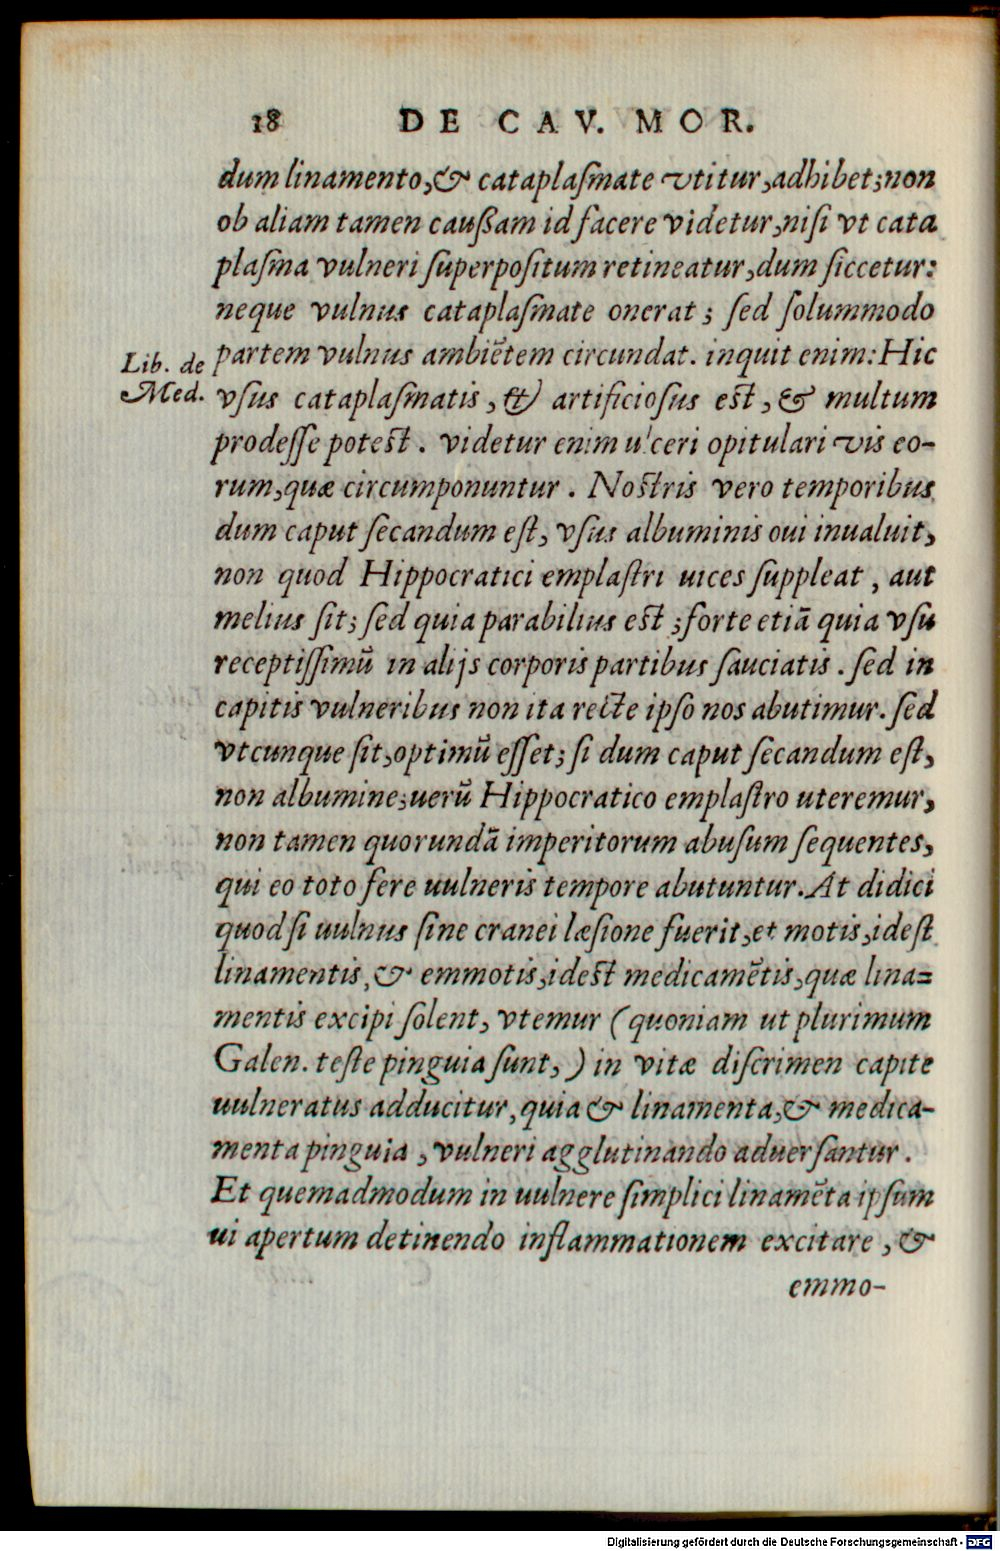 18 DE CAV. MOR.
dum linamento, & cataplaſmate vtitur, adhibet; non
ob aliam tamen cauſſam id facere videtur, niſi vt cata
plaſma vulneri ſuperpoſitum retineatur, dum ſiccetur:
neque vulnus cataplaſmate onerat; ſed ſolummodo
Lib. de
partem vulnus ambiẽtem circundat. inquit enim: Hic
Med.
vſus cataplaſmatis, & artificioſus eſt, & multum
prodeſſe poteſt. videtur enim ulceri opitulari vis eo-
rum, quæ circumponuntur. Noſtris vero temporibus
dum caput ſecandum eſt, vſus albuminis oui inualuit,
non quod Hippocratici emplaſtri uices ſuppleat, aut
melius ſit; ſed quia parabilius eſt; forte etiã quia vſu
receptiſſimũ in alijs corporis partibus ſauciatis. ſed in
capitis vulneribus non ita recte ipſo nos abutimur. ſed
vtcunque ſit, optimũ eſſet; ſi dum caput ſecandum eſt,
non albumine; uerũ Hippocratico emplaſtro uteremur,
non tamen quorundã imperitorum abuſum ſequentes,
qui eo toto fere uulneris tempore abutuntur. At didici
quod ſi uulnus ſine cranei læſione fuerit, et motis, ideſt
linamentis, & emmotis, ideſt medicamẽtis, quæ lina=
mentis excipi ſolent, vtemur (quoniam ut plurimum
Galen. teſte pinguia ſunt,) in vitæ diſcrimen capite
uulneratus adducitur, quia & linamenta, & medica-
menta pinguia, vulneri agglutinando aduerſantur.
Et quemadmodum in uulnere ſimplici linamẽta ipſum
ui apertum detinendo inflammationem excitare, &
emmo-
Digitalisierung gefördert durch die Deutsche Forschungsgemeinschaft - DFG